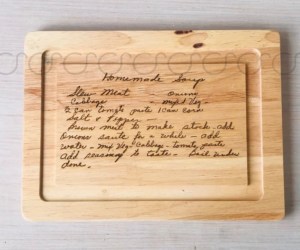 Homemade Soup
Stew Meat onions
Cabbage - mixed Veg.
2 Can Tomato paste 1 Can Corn
Salt & Pepper -
Brown meat to make stock add
onions saute for a while - add
water - mix Veg - Cabbage - tomato paste
add seasoning to taste - boil
done.